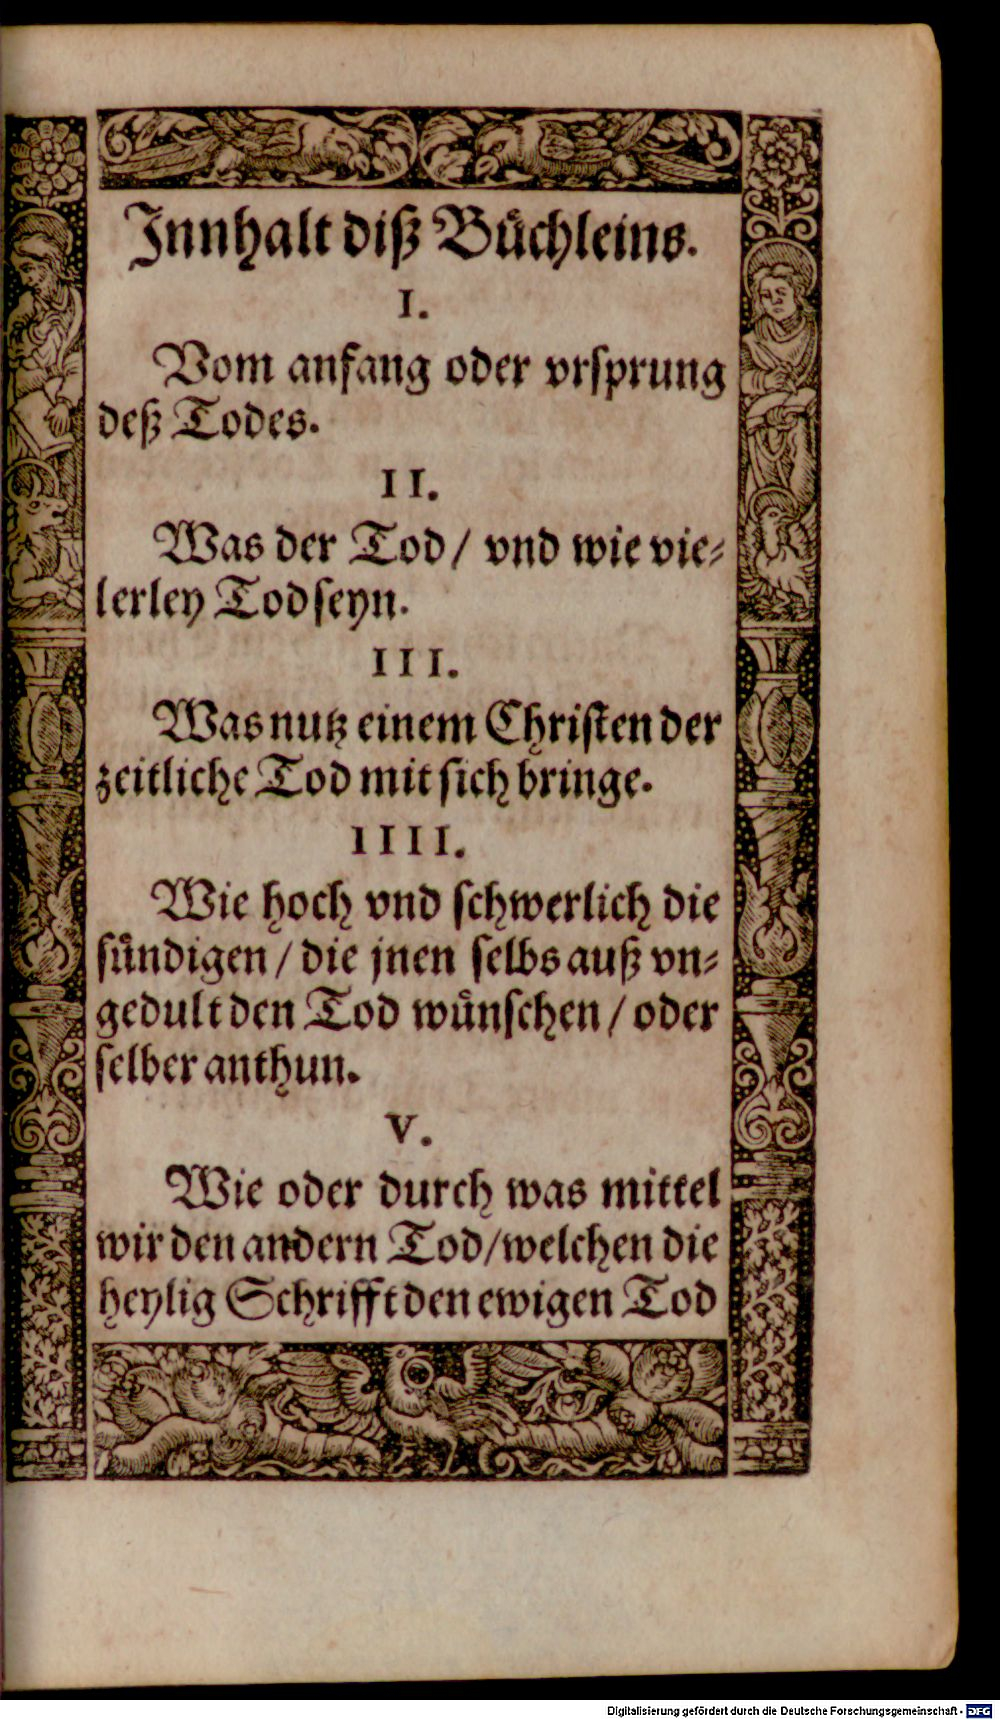 Jnnhalt diß Buͤchleins.
I.
Vom anfang oder vrſprung
deß Todes.
II.
Was der Tod / vnd wie vie⸗
lerley Tod ſeyn.
III.
Was nutz einem Chriſten der
zeitliche Tod mit ſich bringe.
IIII.
Wie hoch vnd ſchwerlich die
ſuͤndigen / die jnen ſelbs auß vn⸗
gedult den Tod wuͤnſchen / oder
ſelber anthun.
V.
Wie oder durch was mittel
wir den andern Tod / welchen die
heylig Schrifft den ewigen Tod
Digitalisierung gefördert durch die Deutsche Forschungsgemeinschaft - DFG